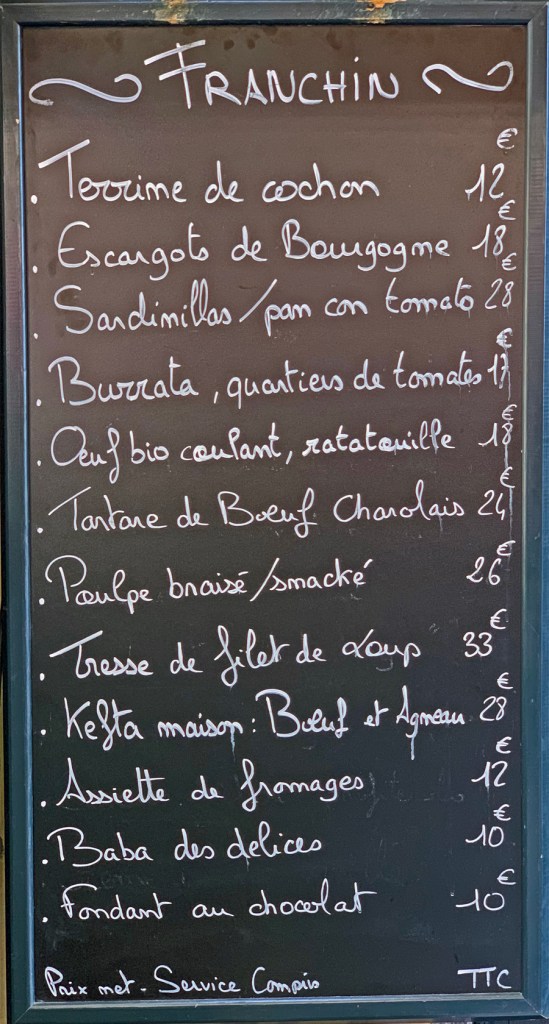 FRANCHIN
. Terrine de cochon 12 €
. Escargots de Bourgogne 18 €
. Sardinillas / pan con tomato 28 €
. Burrata, quartiers de tomates 17 €
. Oeuf bio coulant, ratatouille 18 €
. Tartare de Boeuf Charolais 24 €
. Poulpe braisé / smacké 26 €
. Tresse de filet de Loup 33 €
. Kefta maison : Boeuf et Agneau 28 €
. Assiette de fromages 12 €
. Baba des delices 10 €
. Fondant au chocolat 10 €
Prix net - Service Compris TTC